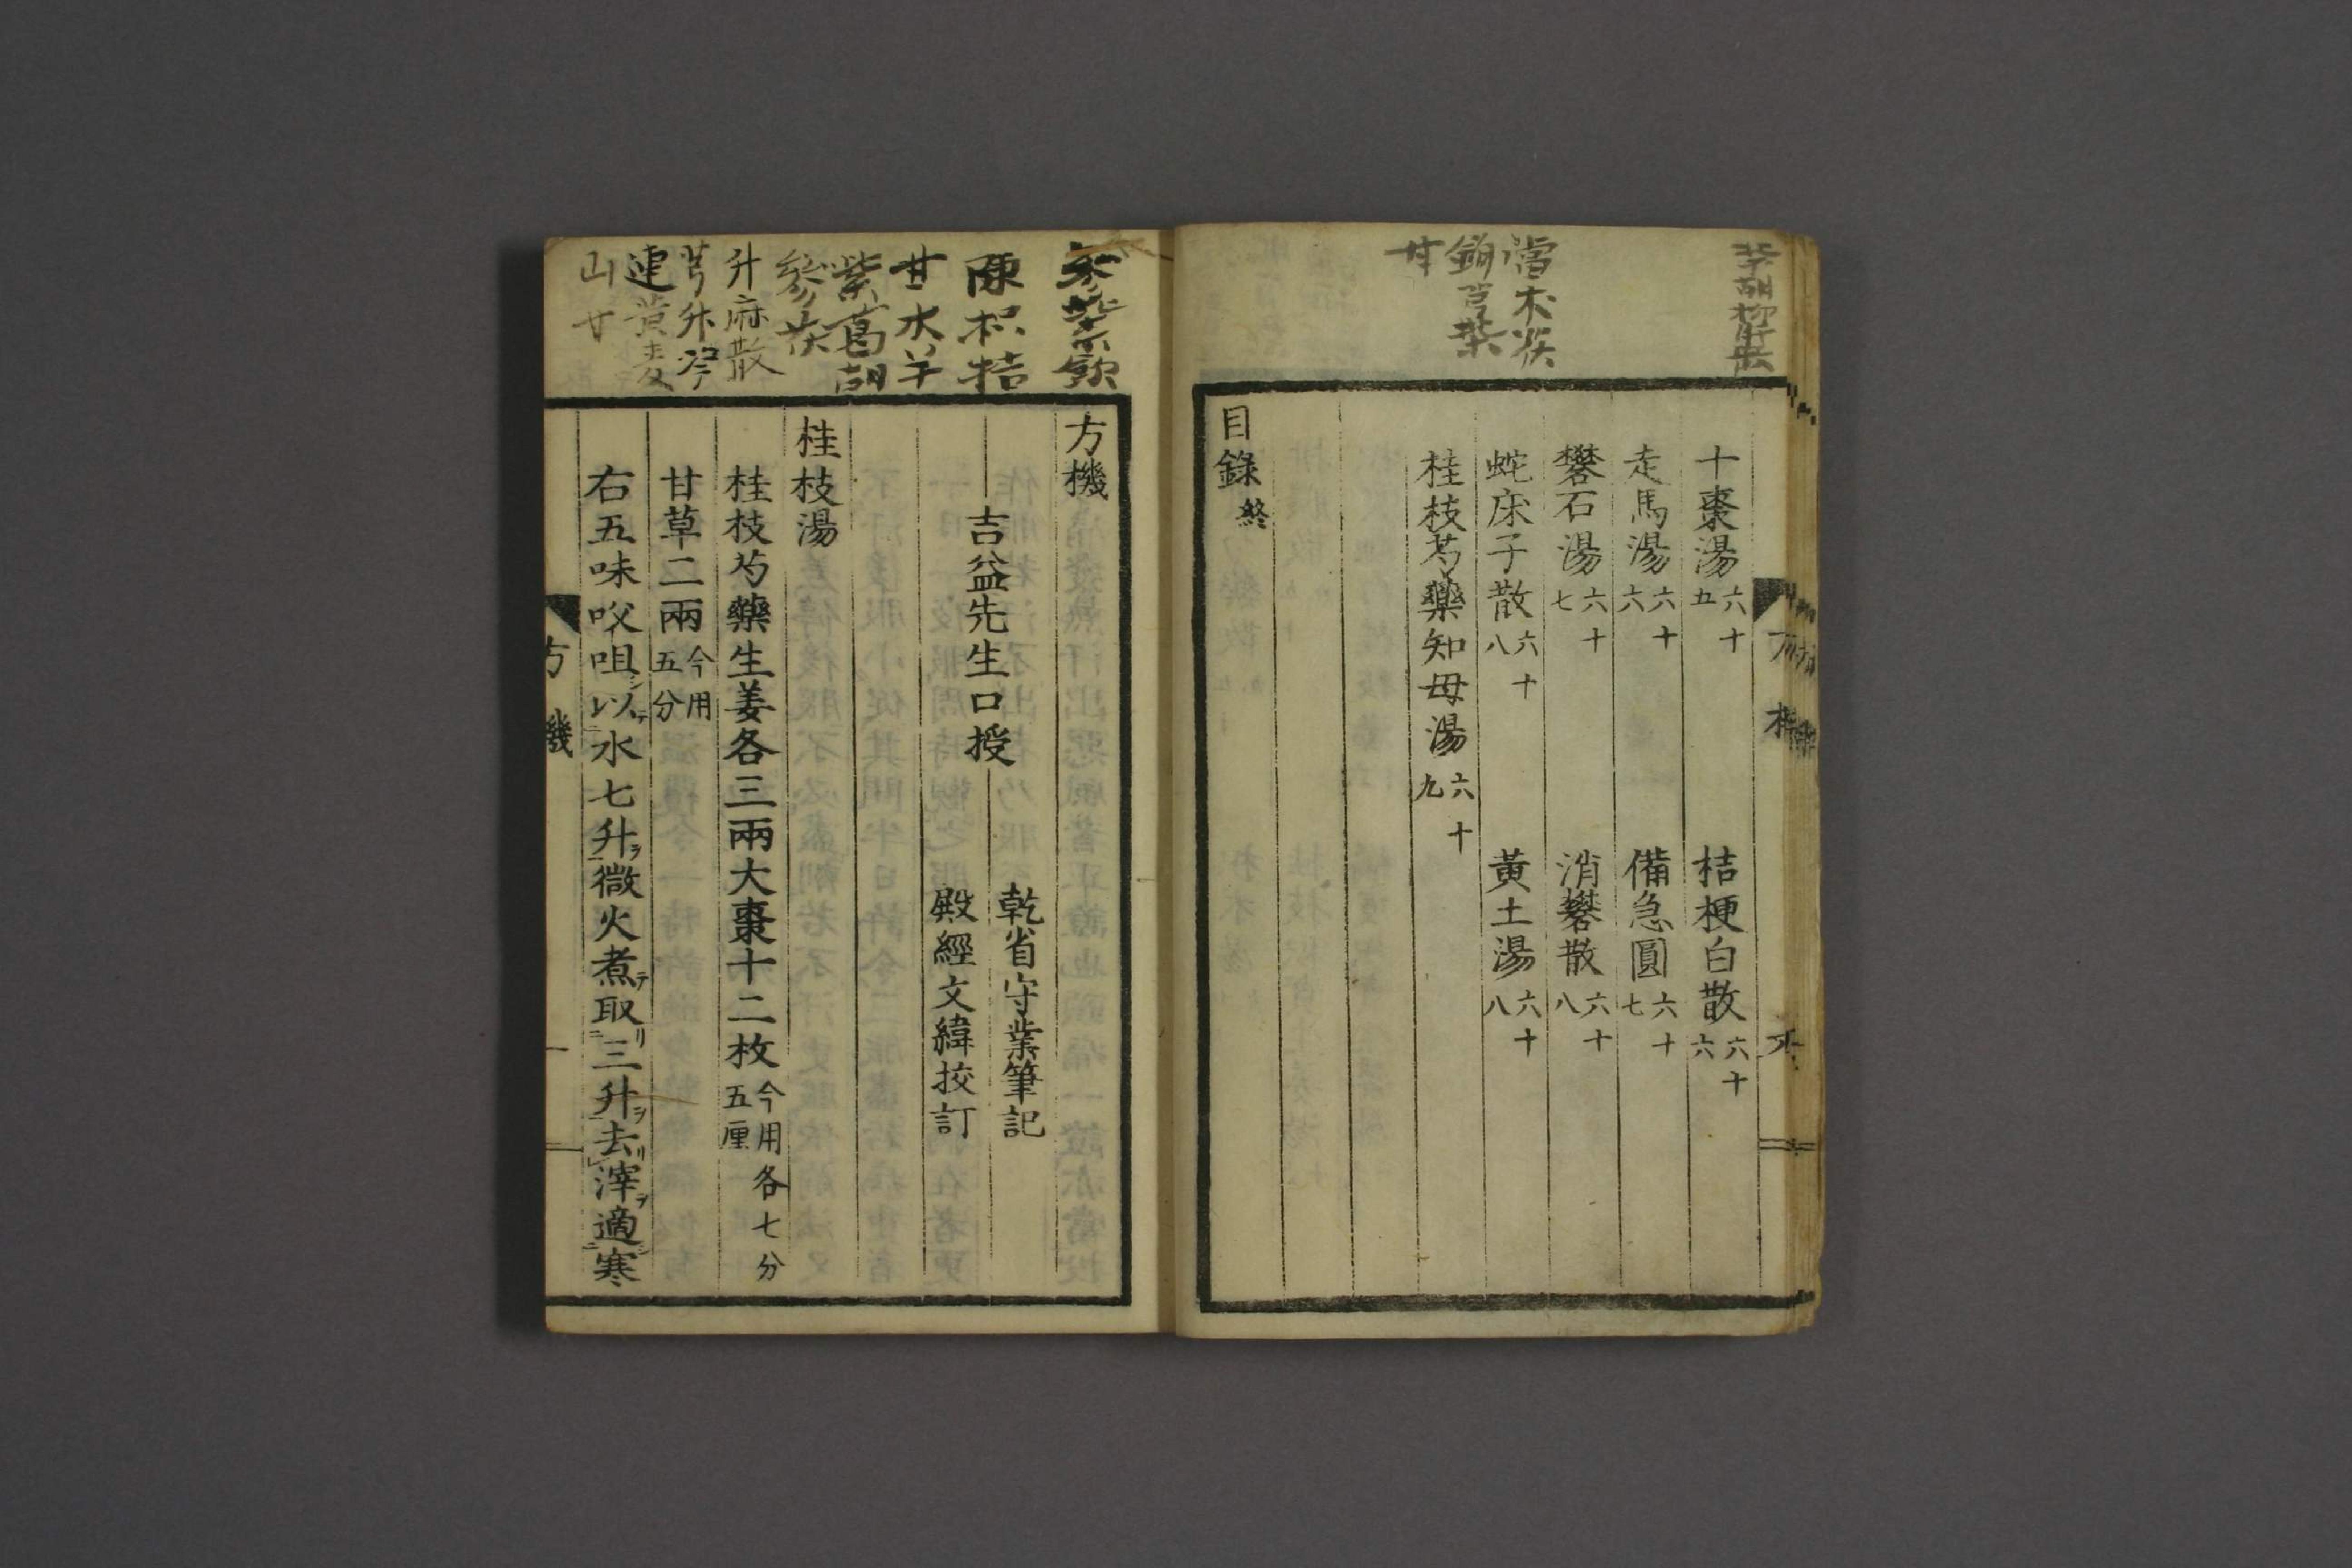 芋胡柳肝
當木茯
鉤芎柴
甘
十棗湯六十五 桔梗白散六十六
走馬湯六十六 備急圓六十七
礬石湯六十七 消礬散六十八
蛇床子散六十八 黃土湯六十八
桂枝芍藥知母湯六十九
目錄終
參柴飲
陳枳桔
甘水羊
紫葛胡
參茯
升麻散
芎升
連黃麦
山甘
方機
吉益先生口授
乾省守業筆記
殿經文緯挍訂
桂枝湯
桂枝芍藥生姜各三兩大棗十二枚今用各七分五厘
甘草二兩今用五分
右五味㕮咀シテ以水七升ヲ微火煮テ取リ三升ヲ去リ滓ヲ適寒
方機